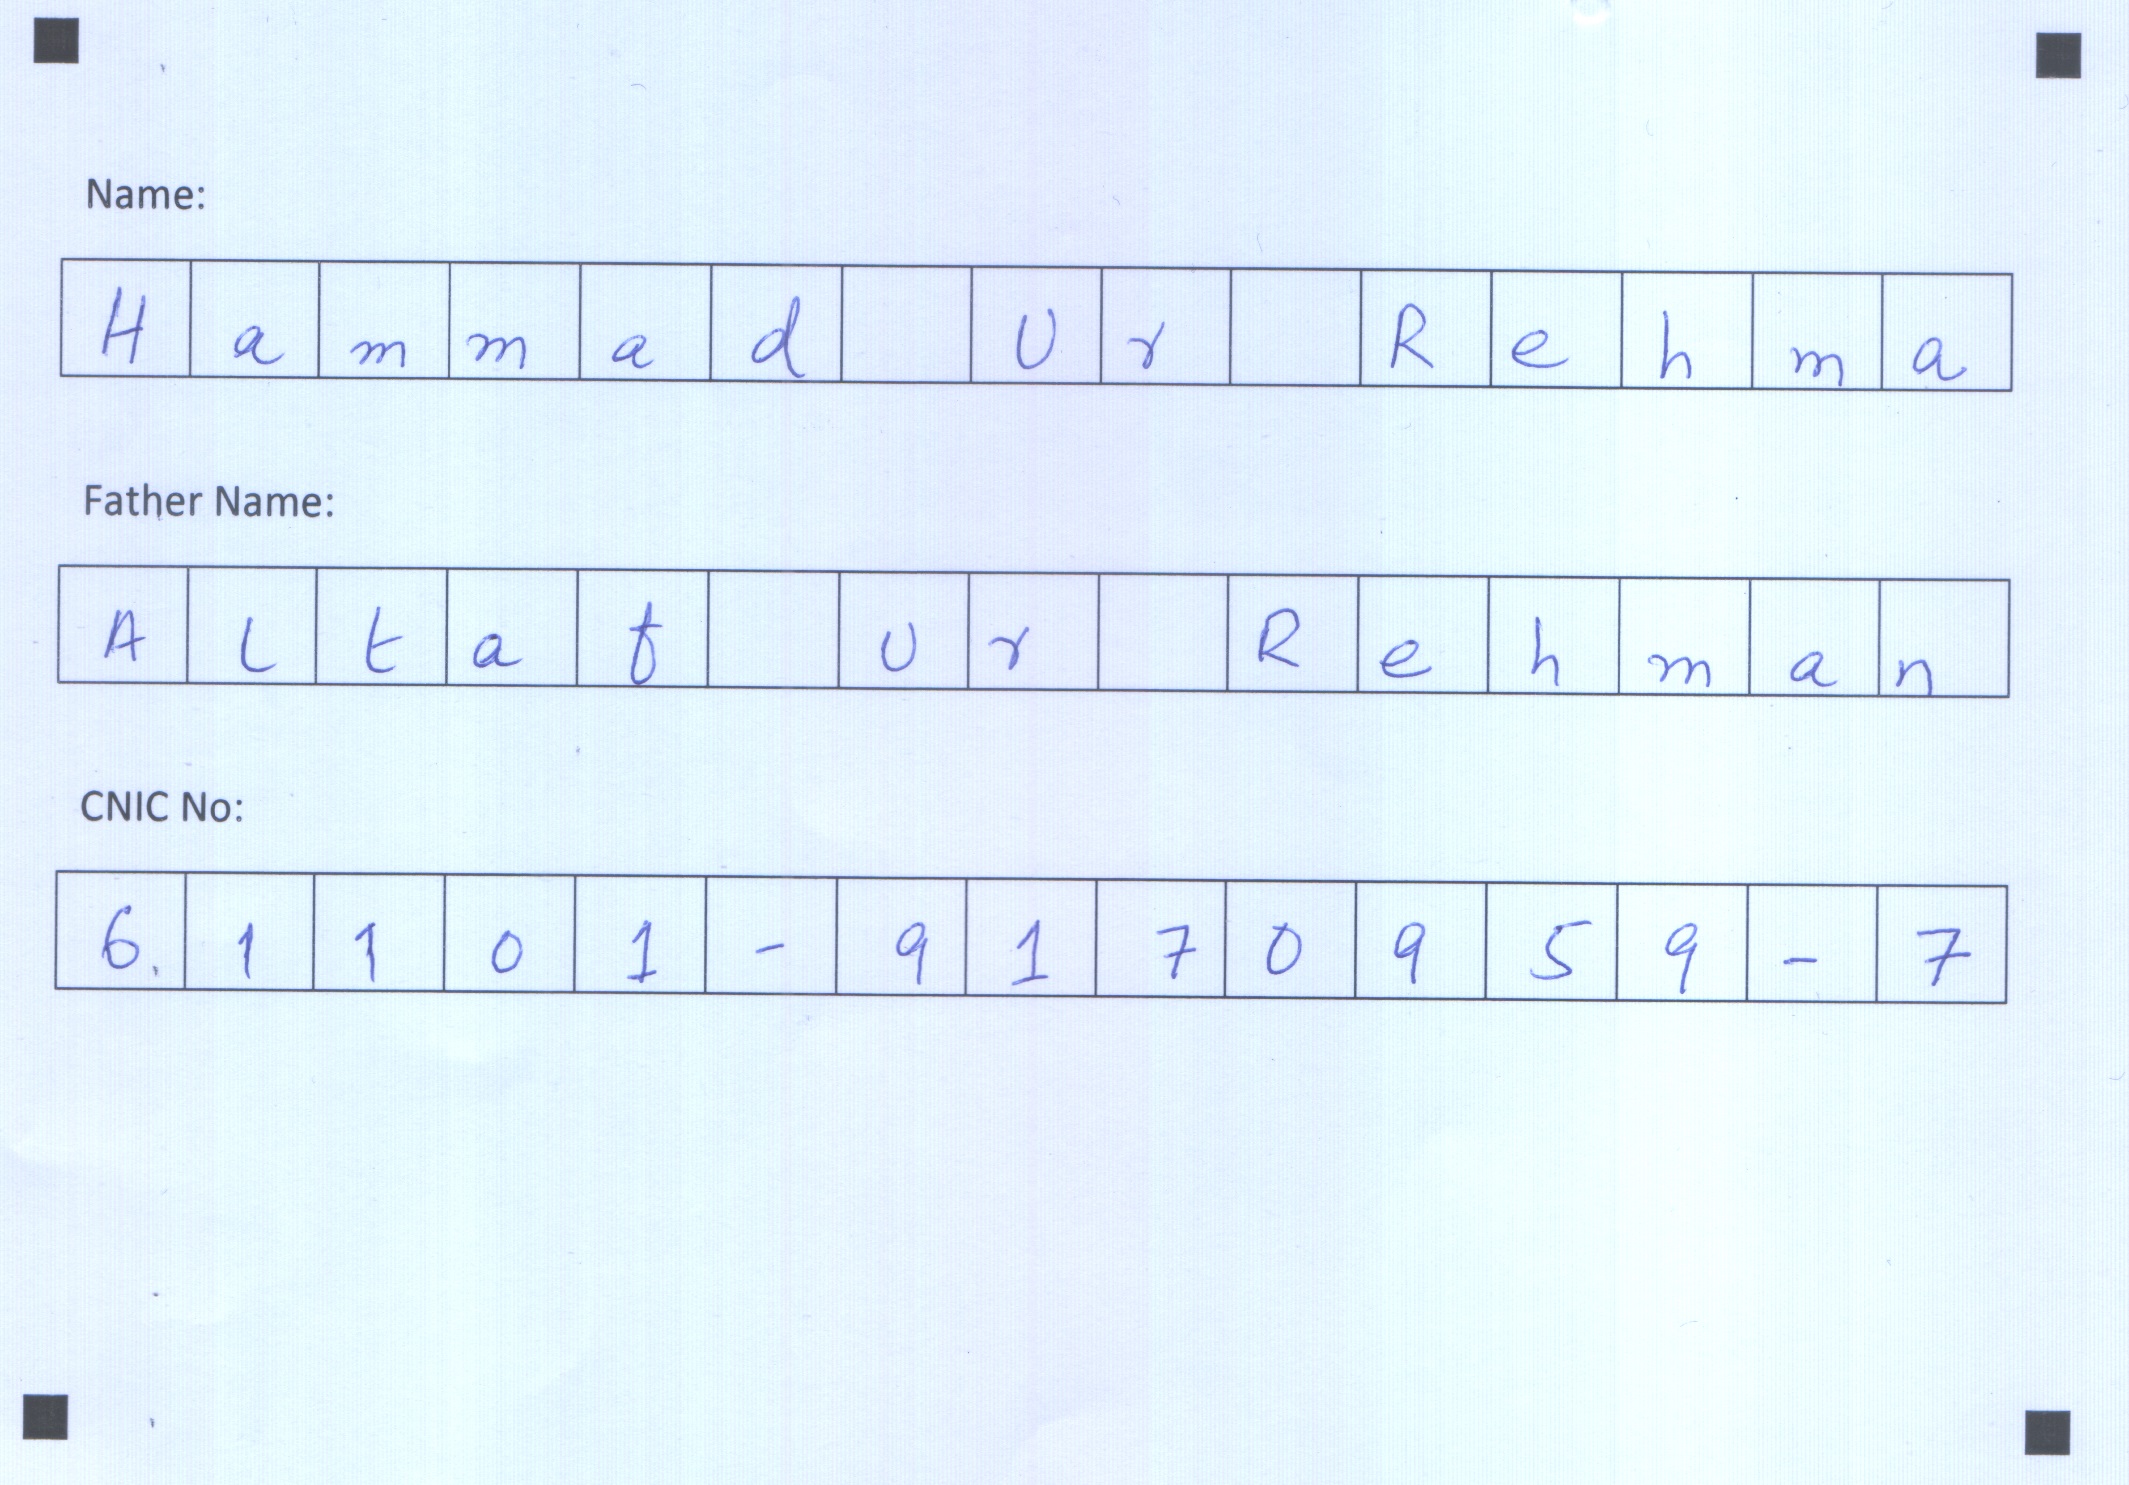 Name:
Hammad Ur Rehma
Father Name:
Altaf Ur Rehman
CNIC No:
61101-9170959-7